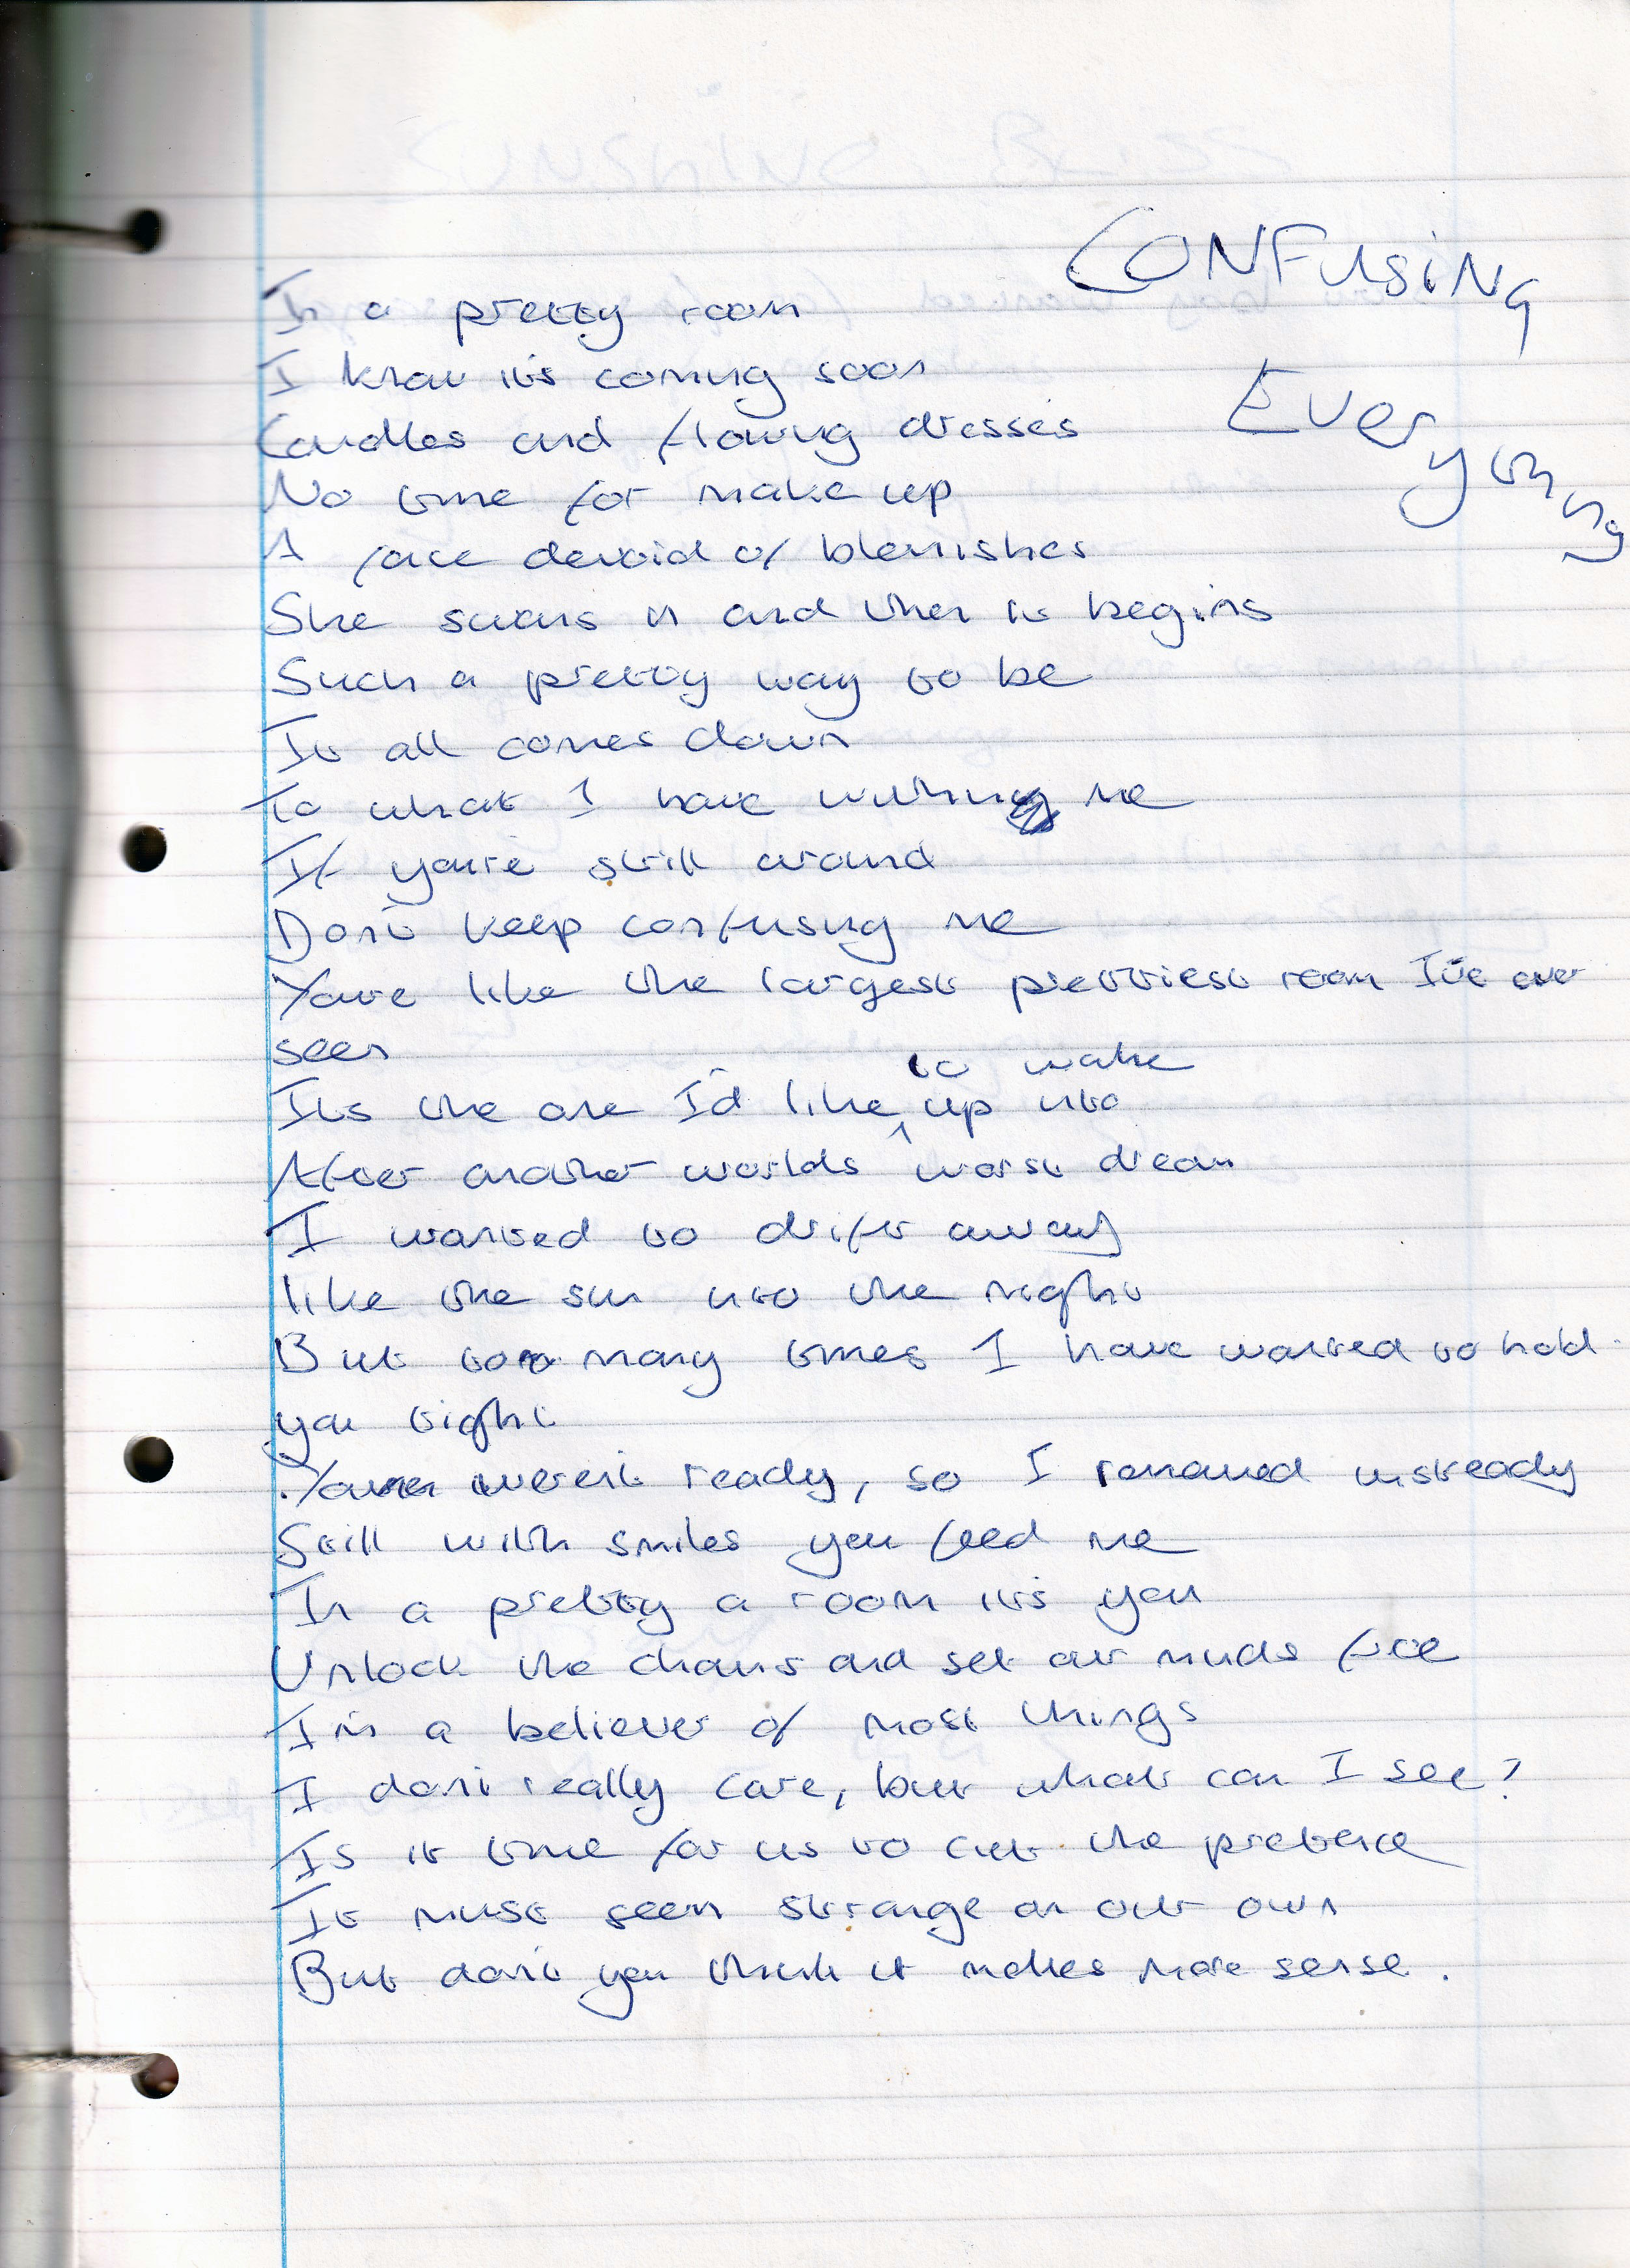 CONFUSING
Everything
In a pretty room
I know it's coming soon
Candles and flowing dresses
No time for make up
A face devoid of blemishes
She swans in and then it begins
Such a pretty way to be
It all comes down
To what I have within me
If you're still around
Don't keep confusing me
You're like the largest prettiest room I've ever
seen
to wake
Its the one I'd like ^ up into
After another worlds worst dream
I wanted to drift away
like the sun into the night
But too many times I have wanted to hold
you tight
You weren't ready, so I remained unsteady
Still with smiles you feed me
In a pretty a room it's you
Unlock the chains and set our minds free
I'm a believer of most things
I don't really care, but what can I see?
Is it time for us to cut the pretence
It must seem strange on our own
But don't you think it makes more sense.